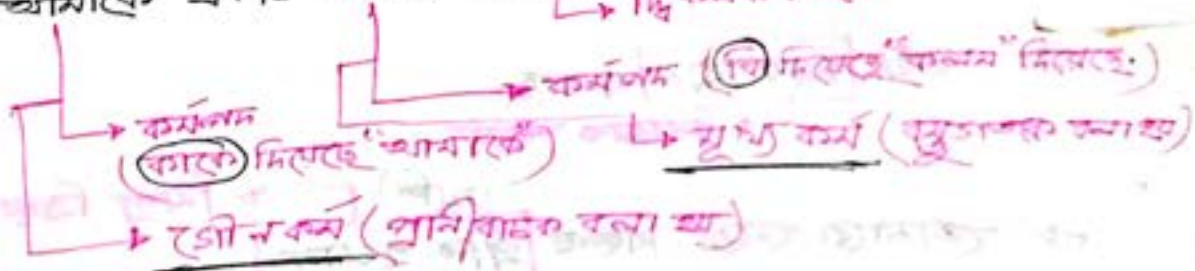 আমাকে
কর্মপদ (কি দিয়েছে "কলম" দিয়েছে.)
কর্মপদ
(কাকে দিয়েছে "আমাকে")
মূখ্য কর্ম (বস্তুবাচক বলা হয়)
গৌন কর্ম (প্রানীবাচক বলা হয়)